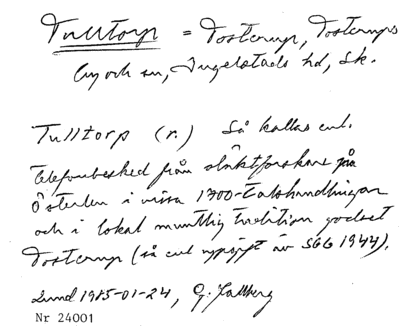 Tulltorp = Tosterup, Tosterups
by och sn, Ingelstads hd, Sk.
Tulltorp (r.) Så kallas enl.
telefonbesked från släktforskare på
Österlen i vissa 1700-talshandlingar
och i lokal muntlig tradition godset
Tosterup (så enl uppgift av SGG 1944).
Lund 1985-01-24, G. Hallberg
Nr 24001